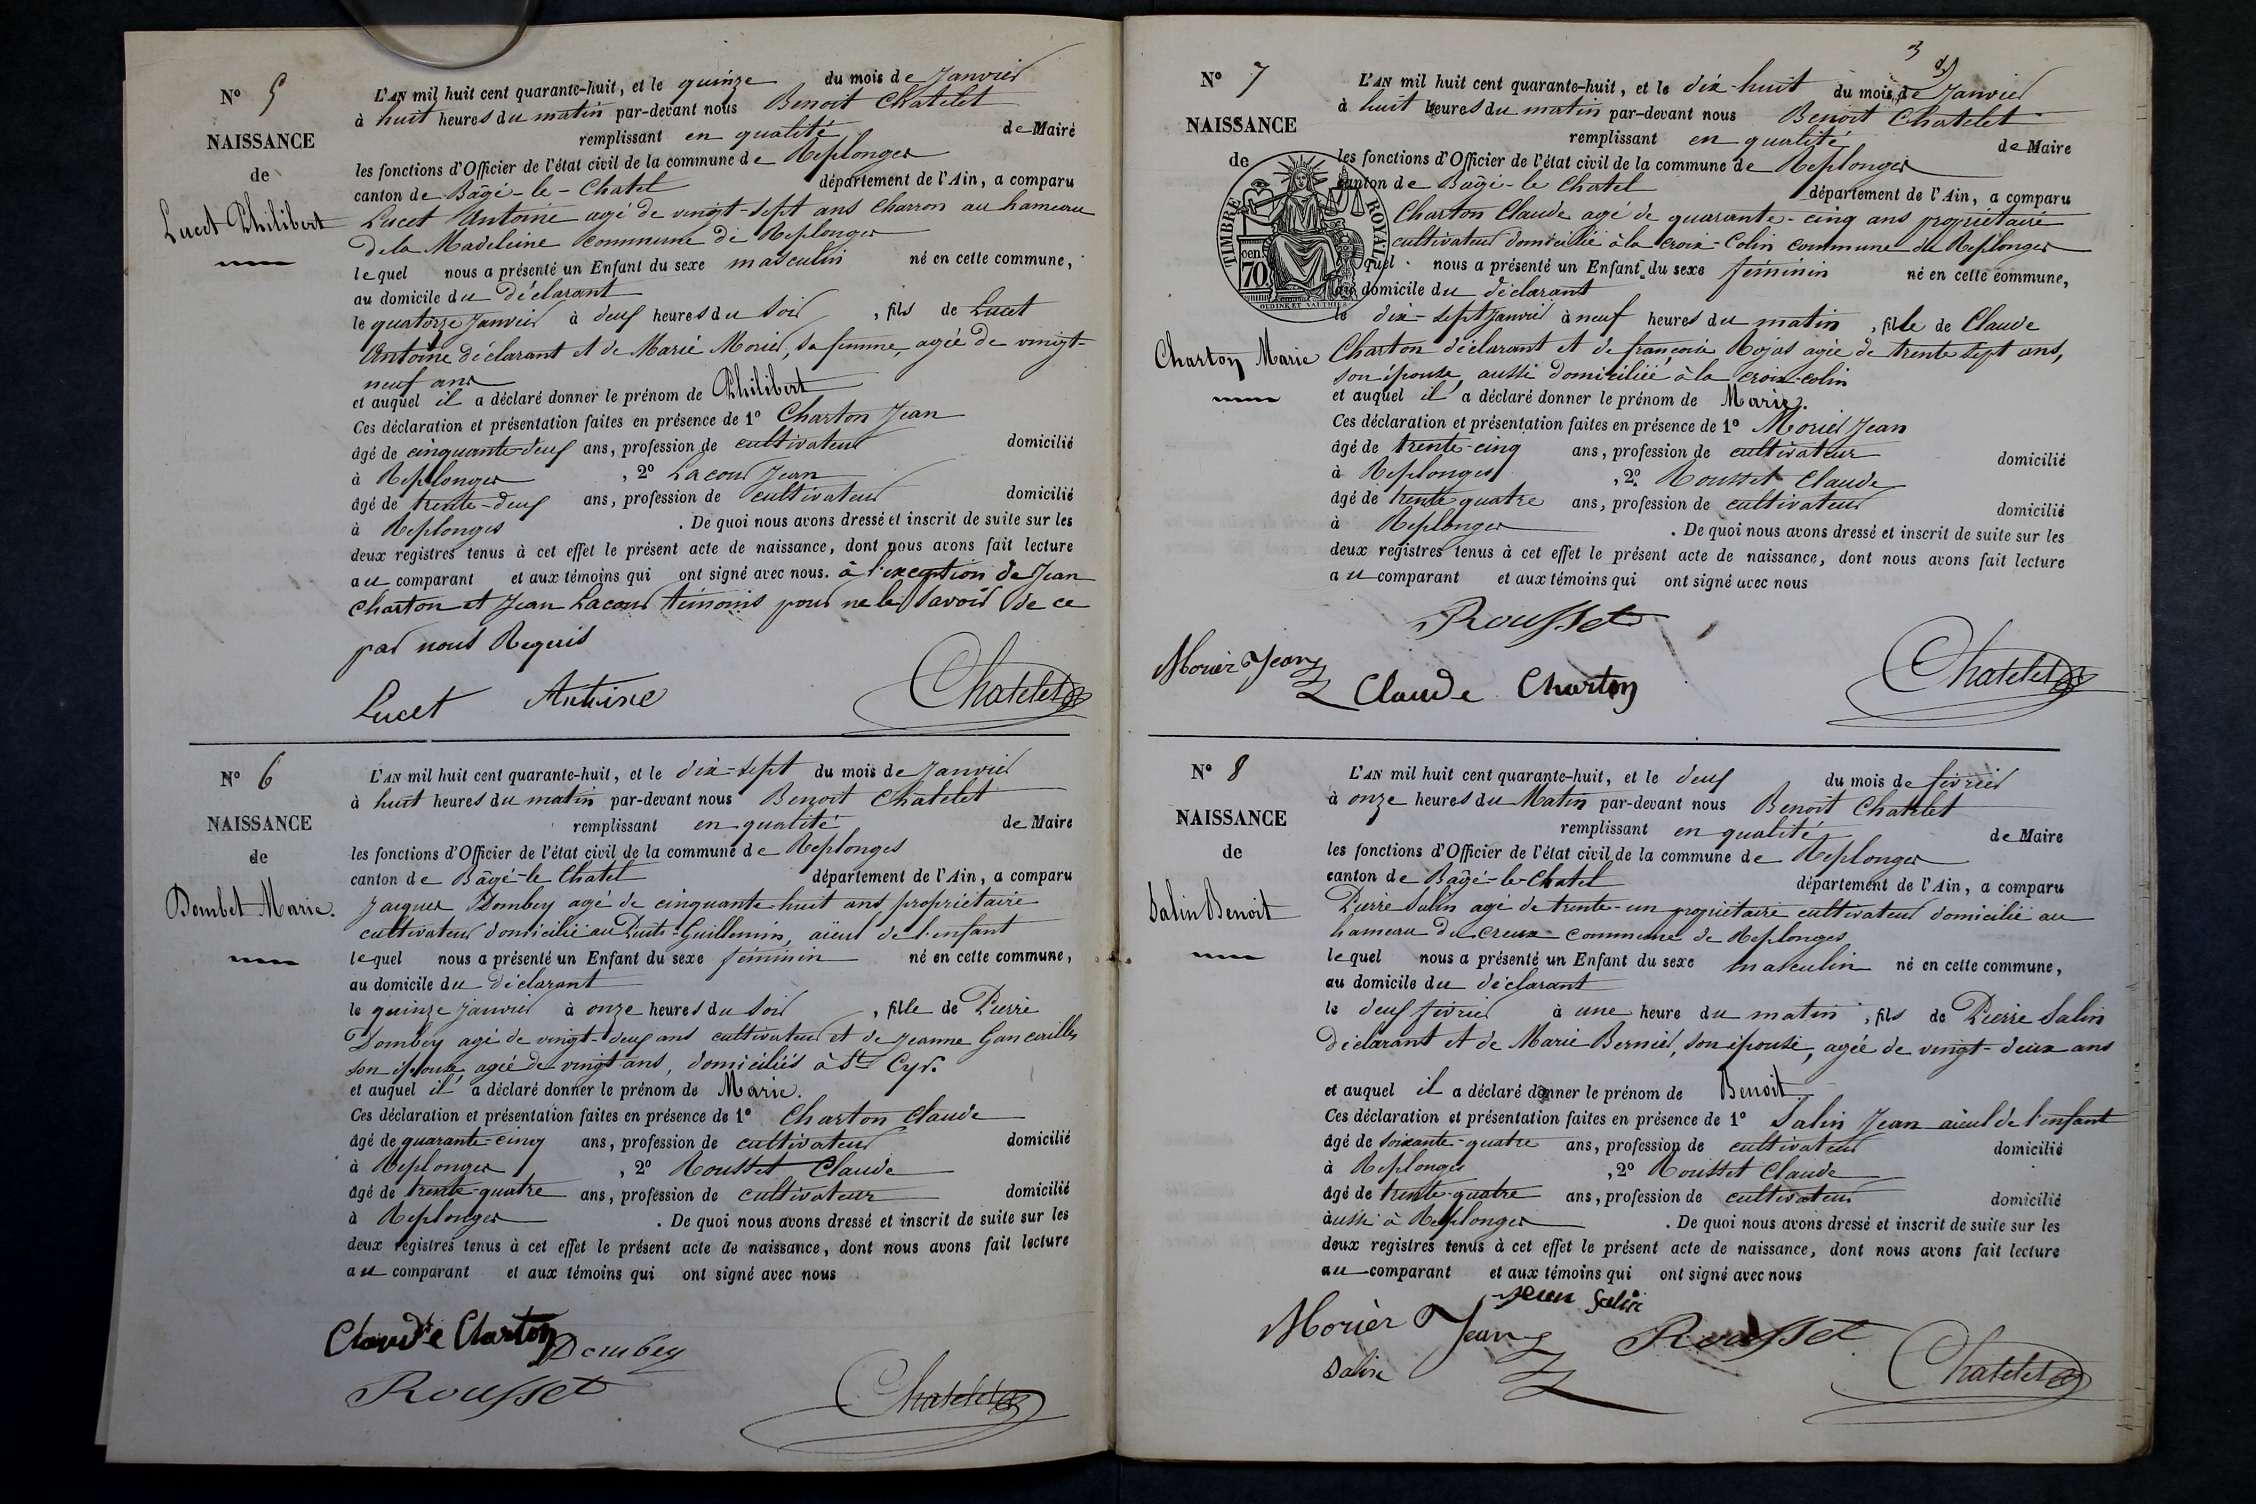 N° 5
NAISSANCE
de
Lucet Philibert
L'AN mil huit cent quarante-huit, et le quinze du mois de Janvier
à huit heures du matin par-devant nous Benoit Chatelet
remplissant en qualité de Maire
les fonctions d'Officier de l'état civil de la commune de Replonges
canton de Bâgé-le-Chatel département de l'Ain, a comparu
Lucet Antoine agé de vingt-sept ans Charron au hameau
de la Madeleine commune de Replonges
lequel nous a présenté un Enfant du sexe masculin né en cette commune,
au domicile du déclarant
le quatorze Janvier à deux heures du soir, fils de Lucet
Antoine déclarant et de Marie Morier, sa femme, agée de vingt-
neuf ans
et auquel il a déclaré donner le prénom de Philibert
Ces déclaration et présentation faites en présence de 1° Charton Jean
âgé de cinquante-deux ans, profession de cultivateur domicilié
à Replonges, 2° Lacour Jean
âgé de trente-deux ans, profession de cultivateur domicilié
à Replonges. De quoi nous avons dressé et inscrit de suite sur les
deux registres tenus à cet effet le présent acte de naissance, dont nous avons fait lecture
au comparant et aux témoins qui ont signé avec nous. à l'exception de Jean
Charton et Jean Lacour témoins pour ne le savoir de ce
par nous Requis
Lucet Antoine Chatelet
N° 6
NAISSANCE
de
Dombet Marie.
L'AN mil huit cent quarante-huit, et le dix-sept du mois de Janvier
à huit heures du matin par-devant nous Benoit Chatelet
remplissant en qualité de Maire
les fonctions d'Officier de l'état civil de la commune de Replonges
canton de Bâgé-le Chatel département de l'Ain, a comparu
Jacques Dombey agé de cinquante-huit ans propriétaire
cultivateur domicilié au Puits-Guillemin, aïeul de l'enfant
lequel nous a présenté un Enfant du sexe féminin né en cette commune,
au domicile du déclarant
le quinze janvier à onze heures du soir, fille de Pierre
Dombey agé de vingt-deux ans cultivateur et de Jeanne
son épouse agée de vingt ans, domiciliés à St Cyr.
et auquel il a déclaré donner le prénom de Marie.
Ces déclaration et présentation faites en présence de 1° Charton Claude
âgé de quarante-cinq ans, profession de cultivateur domicilié
à Replonges, 2° Rousset Claude
âgé de trente-quatre ans, profession de cultivateur domicilié
à Replonges. De quoi nous avons dressé et inscrit de suite sur les
deux registres tenus à cet effet le présent acte de naissance, dont nous avons fait lecture
au comparant et aux témoins qui ont signé avec nous
Claude Charton Dombey
Rousset Chatelet
3
N° 7
NAISSANCE
de
TIMBRE ROYAL
cen.
70
Charton Marie
L'AN mil huit cent quarante-huit, et le dix-huit du mois de Janvier
à huit heures du matin par-devant nous Benoit Chatelet
remplissant en qualité de Maire
les fonctions d'Officier de l'état civil de la commune de Replonges
canton de Bâgé-le Chatel département de l'Ain, a comparu
Charton Claude agé de quarante-cinq ans propriétaire
cultivateur domicilié à la croix-Colin commune de Replonges
quel nous a présenté un Enfant du sexe féminin né en cette commune,
au domicile du déclarant
le dix-sept Janvier à neuf heures du matin, fille de Claude
Charton déclarant et de françoise Rojas agée de trente sept ans,
son épouse, aussi domiciliée à la croix-colin
et auquel il a déclaré donner le prénom de Marie.
Ces déclaration et présentation faites en présence de 1° Morier Jean
âgé de trente-cinq ans, profession de cultivateur domicilié
à Replonges, 2° Rousset Claude
âgé de trente-quatre ans, profession de cultivateur domicilié
à Replonges. De quoi nous avons dressé et inscrit de suite sur les
deux registres tenus à cet effet le présent acte de naissance, dont nous avons fait lecture
au comparant et aux témoins qui ont signé avec nous
Rousset
Morier Jean Claude Charton Chatelet
N° 8
NAISSANCE
de
Salin Benoit
L'AN mil huit cent quarante-huit, et le deux du mois de février
à onze heures du Matin par-devant nous Benoit Chatelet
remplissant en qualité de Maire
les fonctions d'Officier de l'état civil de la commune de Replonges
canton de Bâgé-le-Chatel département de l'Ain, a comparu
Pierre Salin agé de trente-un propriétaire cultivateur domicilié au
hameau du creux commune de Replonges
lequel nous a présenté un Enfant du sexe masculin né en cette commune,
au domicile du déclarant
le deux février à une heure du matin, fils de Pierre Salin
déclarant et de Marie Bernier, son épouse, agée de vingt-deux ans
et auquel il a déclaré donner le prénom de Benoit
Ces déclaration et présentation faites en présence de 1° Salin Jean aïeul de l'enfant
âgé de soixante-quatre ans, profession de cultivateur domicilié
à Replonges, 2° Rousset Claude
âgé de trente-quatre ans, profession de cultivateur domicilié
aussi à Replonges. De quoi nous avons dressé et inscrit de suite sur les
deux registres tenus à cet effet le présent acte de naissance, dont nous avons fait lecture
au comparant et aux témoins qui ont signé avec nous
Jean Salin
Morier Jean Rousset
Salin Chatelet